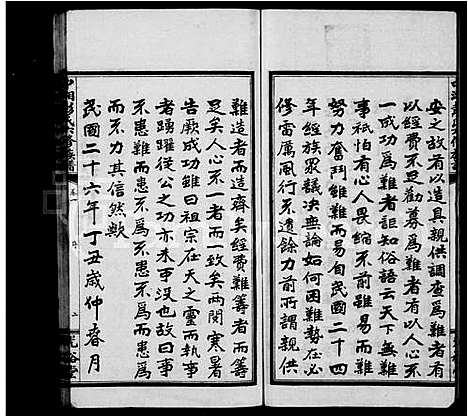 安之故有以造具親供調查爲難者有
以經費不足勸募爲難者有以人心不
一成功爲難者詎知俗語云天下無難
事祗怕有心人畏縮不前雖易亦難
努力奮鬥雖難而易自民國二十四
年經族眾議決無論如何困難勢在必
修雷厲風行不遺餘力前所謂親供
難造者而造齊矣經費難籌者而籌
足矣人心不一者而一致矣兩閱寒暑
告厥成功雖曰祖宗在天之靈而執事
者踴躍從公之功亦未可没也故曰事
不患難而患不爲不患不爲而患爲
而不力其信然歟
民國二十六年丁丑歲仲春月